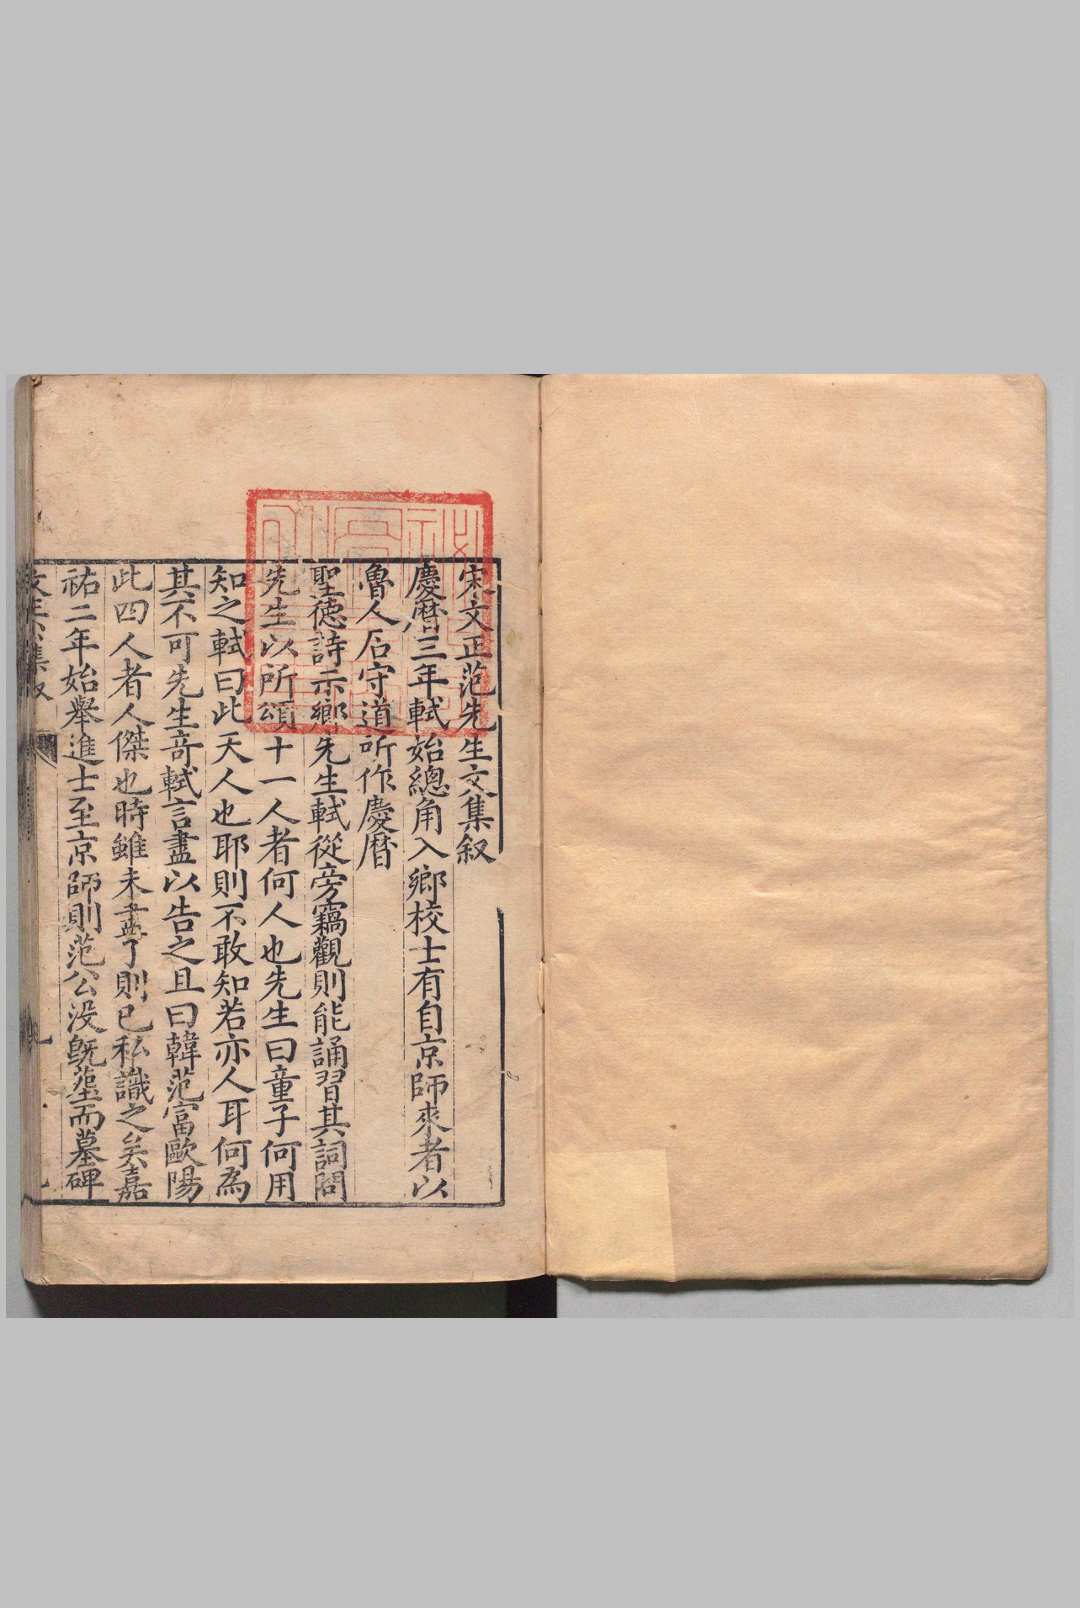 宋文正范先生文集叙
慶曆三年軾始總角入鄉校士有自京師來者以
魯人石守道所作慶曆
聖德詩示鄉先生軾從旁竊觀則能誦習其詞問
先生以所頌十一人者何人也先生曰童子何用
知之軾曰此天人也耶則不敢知若亦人耳何為
其不可先生竒軾言盡以告之且曰韓范富歐陽
此四人者人傑也時雖未盡了則已私識之矣嘉
祐二年始舉進士至京師則范公没旣塟而墓碑